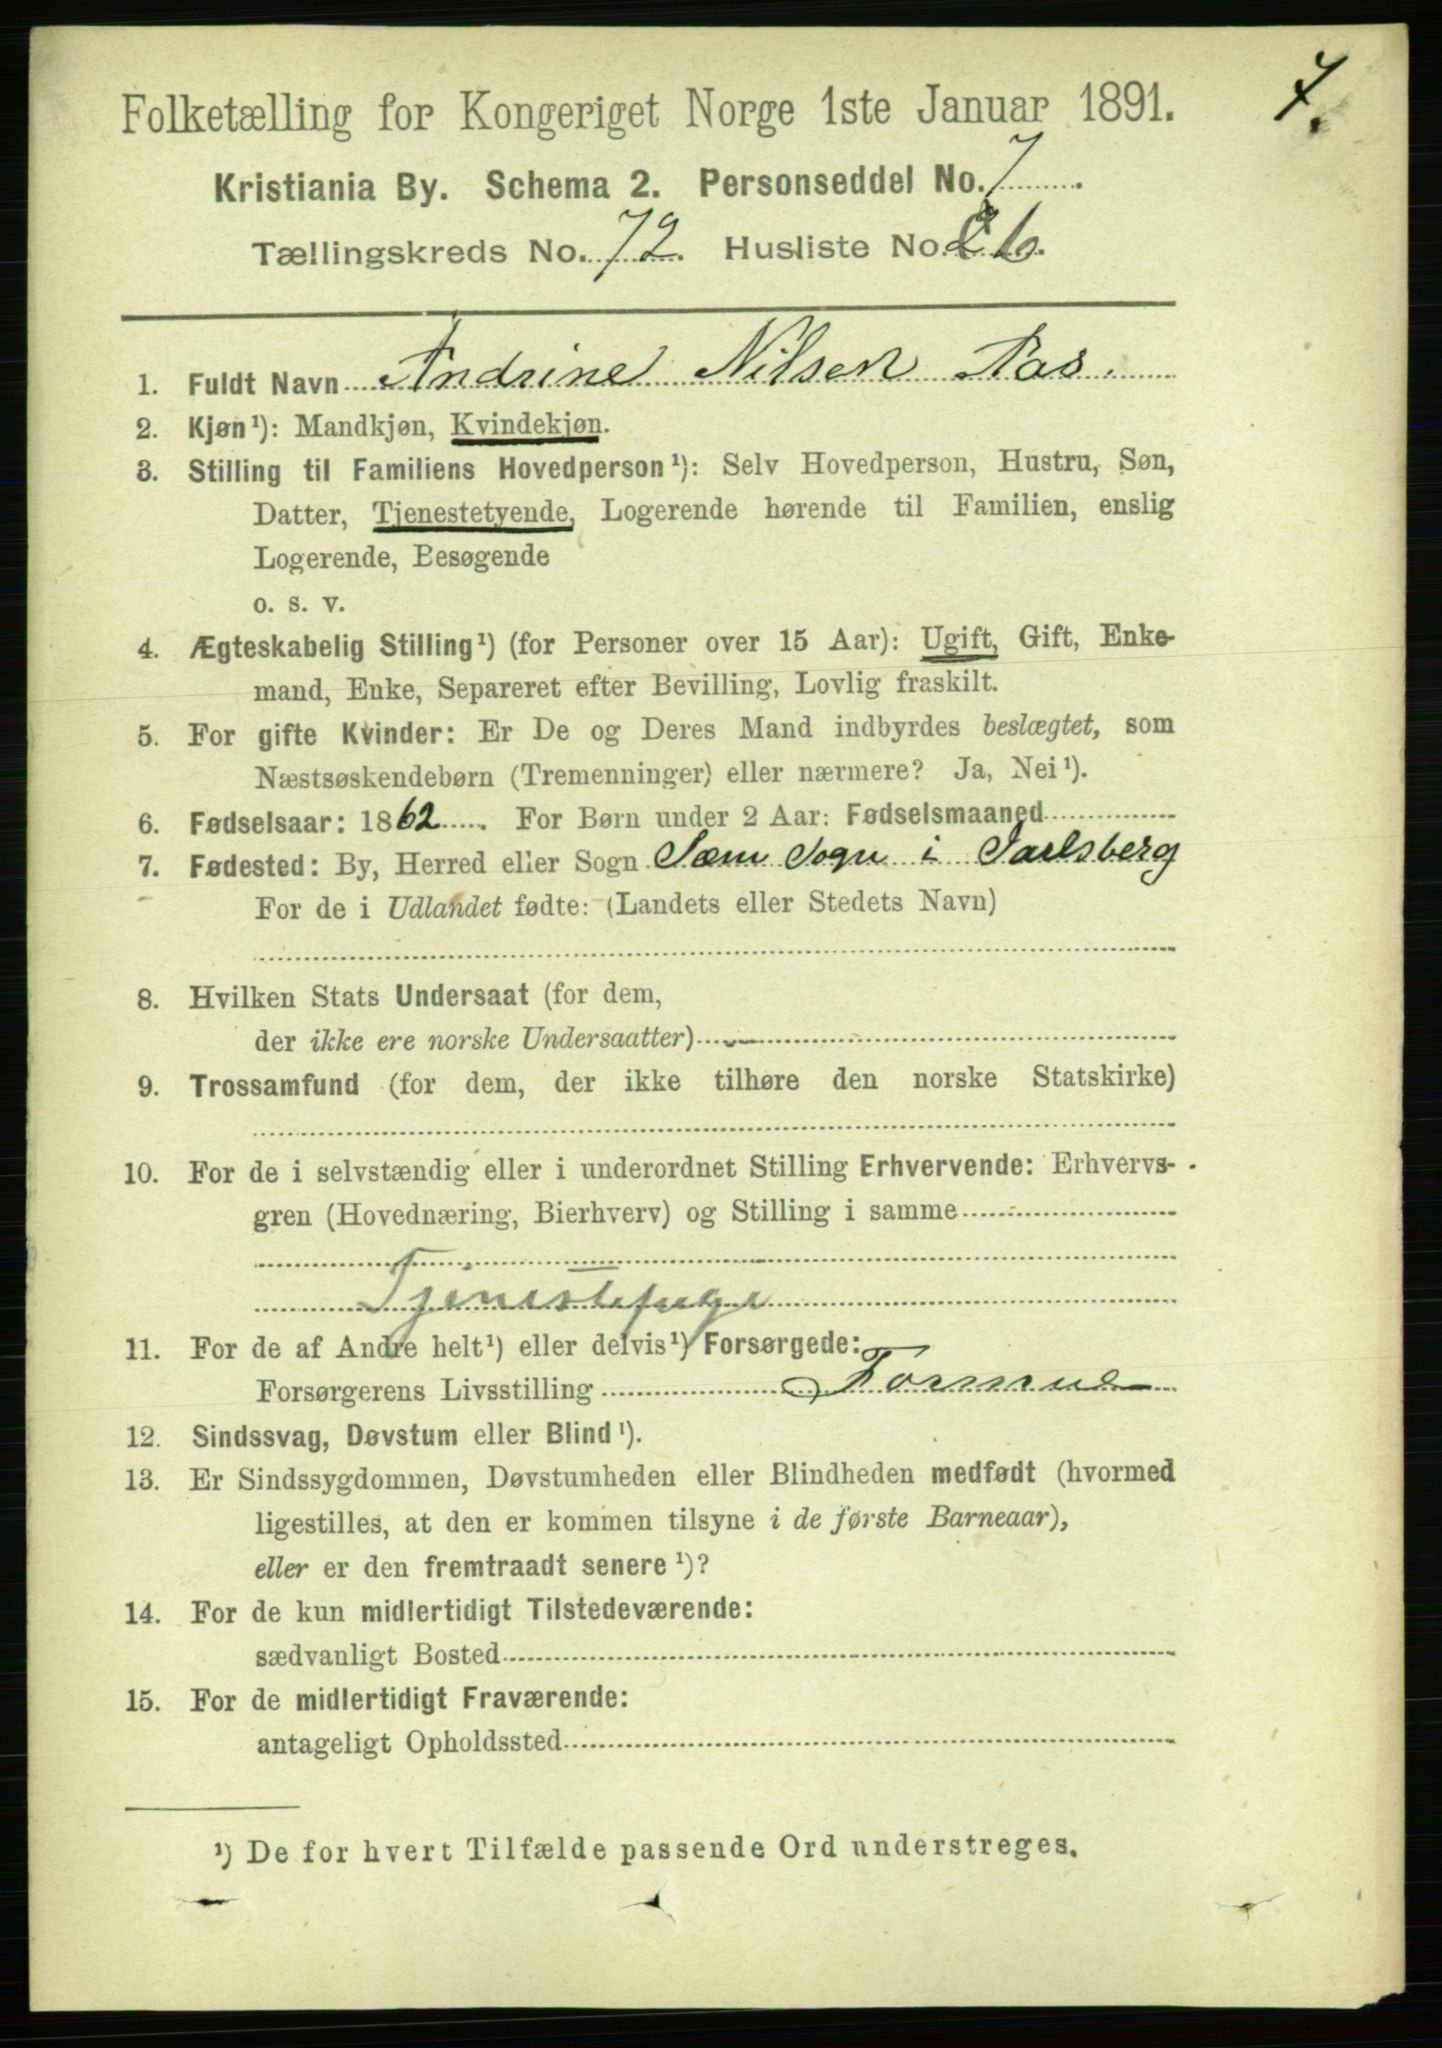 7.
Folketælling for Kongeriget Norge 1ste Januar 1891.
Kristiania By. Schema 2. Personseddel No. 7.
Tællingskreds No. 72. Husliste No.
1. Fuldt Navn Andrine Nilsen Aas.
2. Kjøn¹): Mandkjøn, Kvindekjøn.
3. Stilling til Familiens Hovedperson¹): Selv Hovedperson, Hustru, Søn,
Datter, Tjenestetyende, Logerende hørende til Familien, enslig
Logerende, Besøgende
o. s. v.
4. Ægteskabelig Stilling¹) (for Personer over 15 Aar): Ugift, Gift, Enke-
mand, Enke, Separeret efter Bevilling, Lovlig fraskilt.
5. For gifte Kvinder: Er De og Deres Mand indbyrdes beslægtet, som
Næstsøskendebørn (Tremenninger) eller nærmere? Ja, Nei¹).
6. Fødselsaar: 1862. For Børn under 2 Aar: Fødselsmaaned
7. Fødested: By, Herred eller Sogn Sæm Sogn i Jarlsberg
For de i Udlandet fødte: (Landets eller Stedets Navn)
8. Hvilken Stats Undersaat (for dem,
der ikke ere norske Undersaatter)
9. Trossamfund (for dem, der ikke tilhøre den norske Statskirke)
10. For de i selvstændig eller i underordnet Stilling Erhvervende: Erhvervs-
gren (Hovednæring, Bierhverv) og Stilling i samme
Tjenestepige
11. For de af Andre helt¹) eller delvis¹) Forsørgede:
Forsørgerens Livsstilling Formue
12. Sindssvag, Døvstum eller Blind¹).
13. Er Sindssygdommen, Døvstumheden eller Blindheden medfødt (hvormed
ligestilles, at den er kommen tilsyne i de første Barneaar),
eller er den fremtraadt senere¹)?
14. For de kun midlertidigt Tilstedeværende:
sædvanligt Bosted
15. For de midlertidigt Fraværende:
antageligt Opholdssted
¹) De for hvert Tilfælde passende Ord understreges.